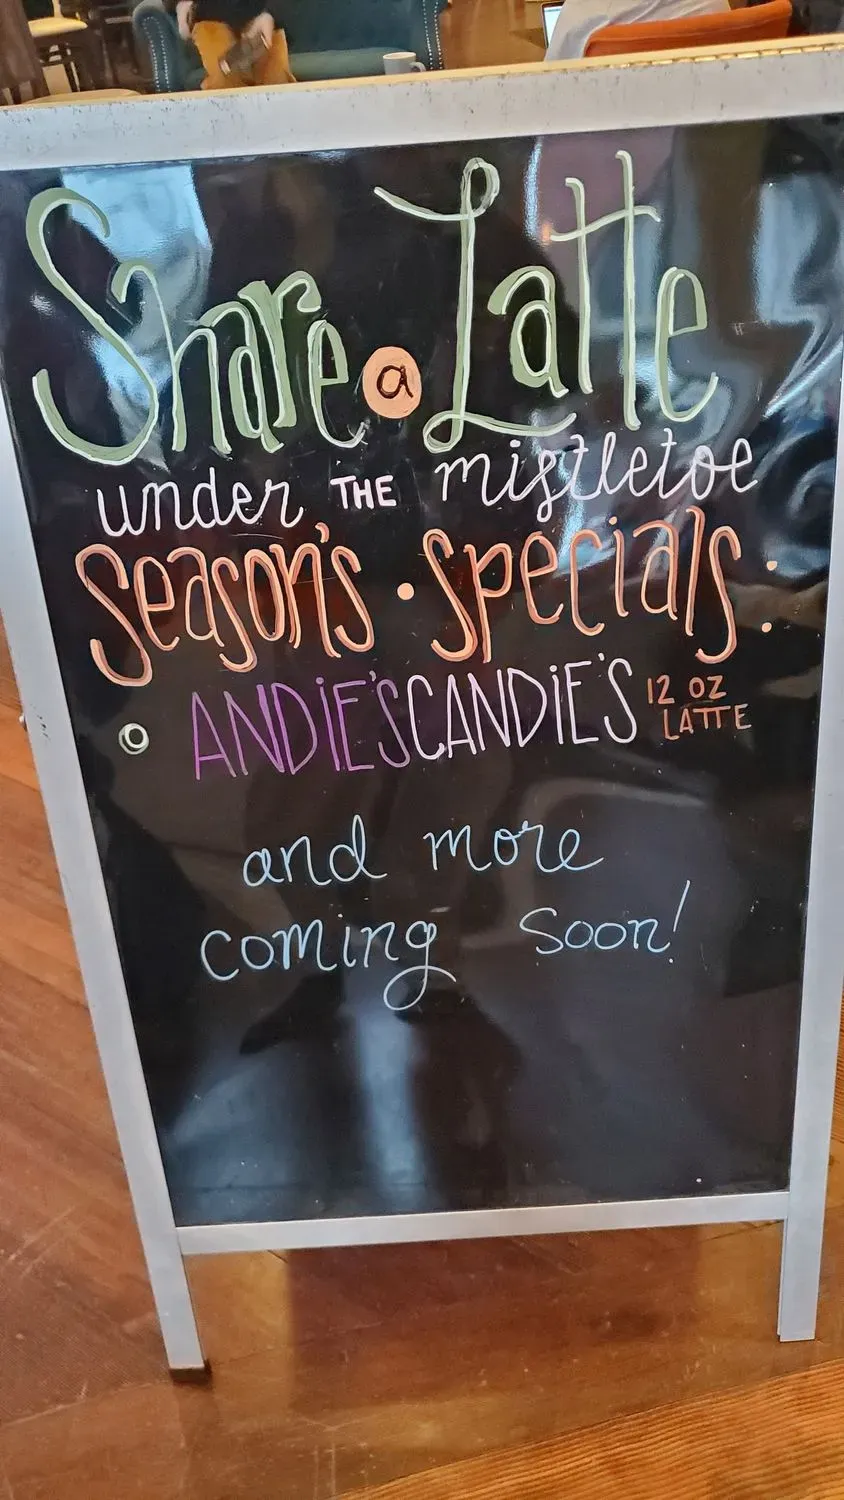 Share a Latte
under THE mistletoe
Season's • Specials :
ANDiE'S CANDiE'S 12 OZ LATTE
and more
coming soon!